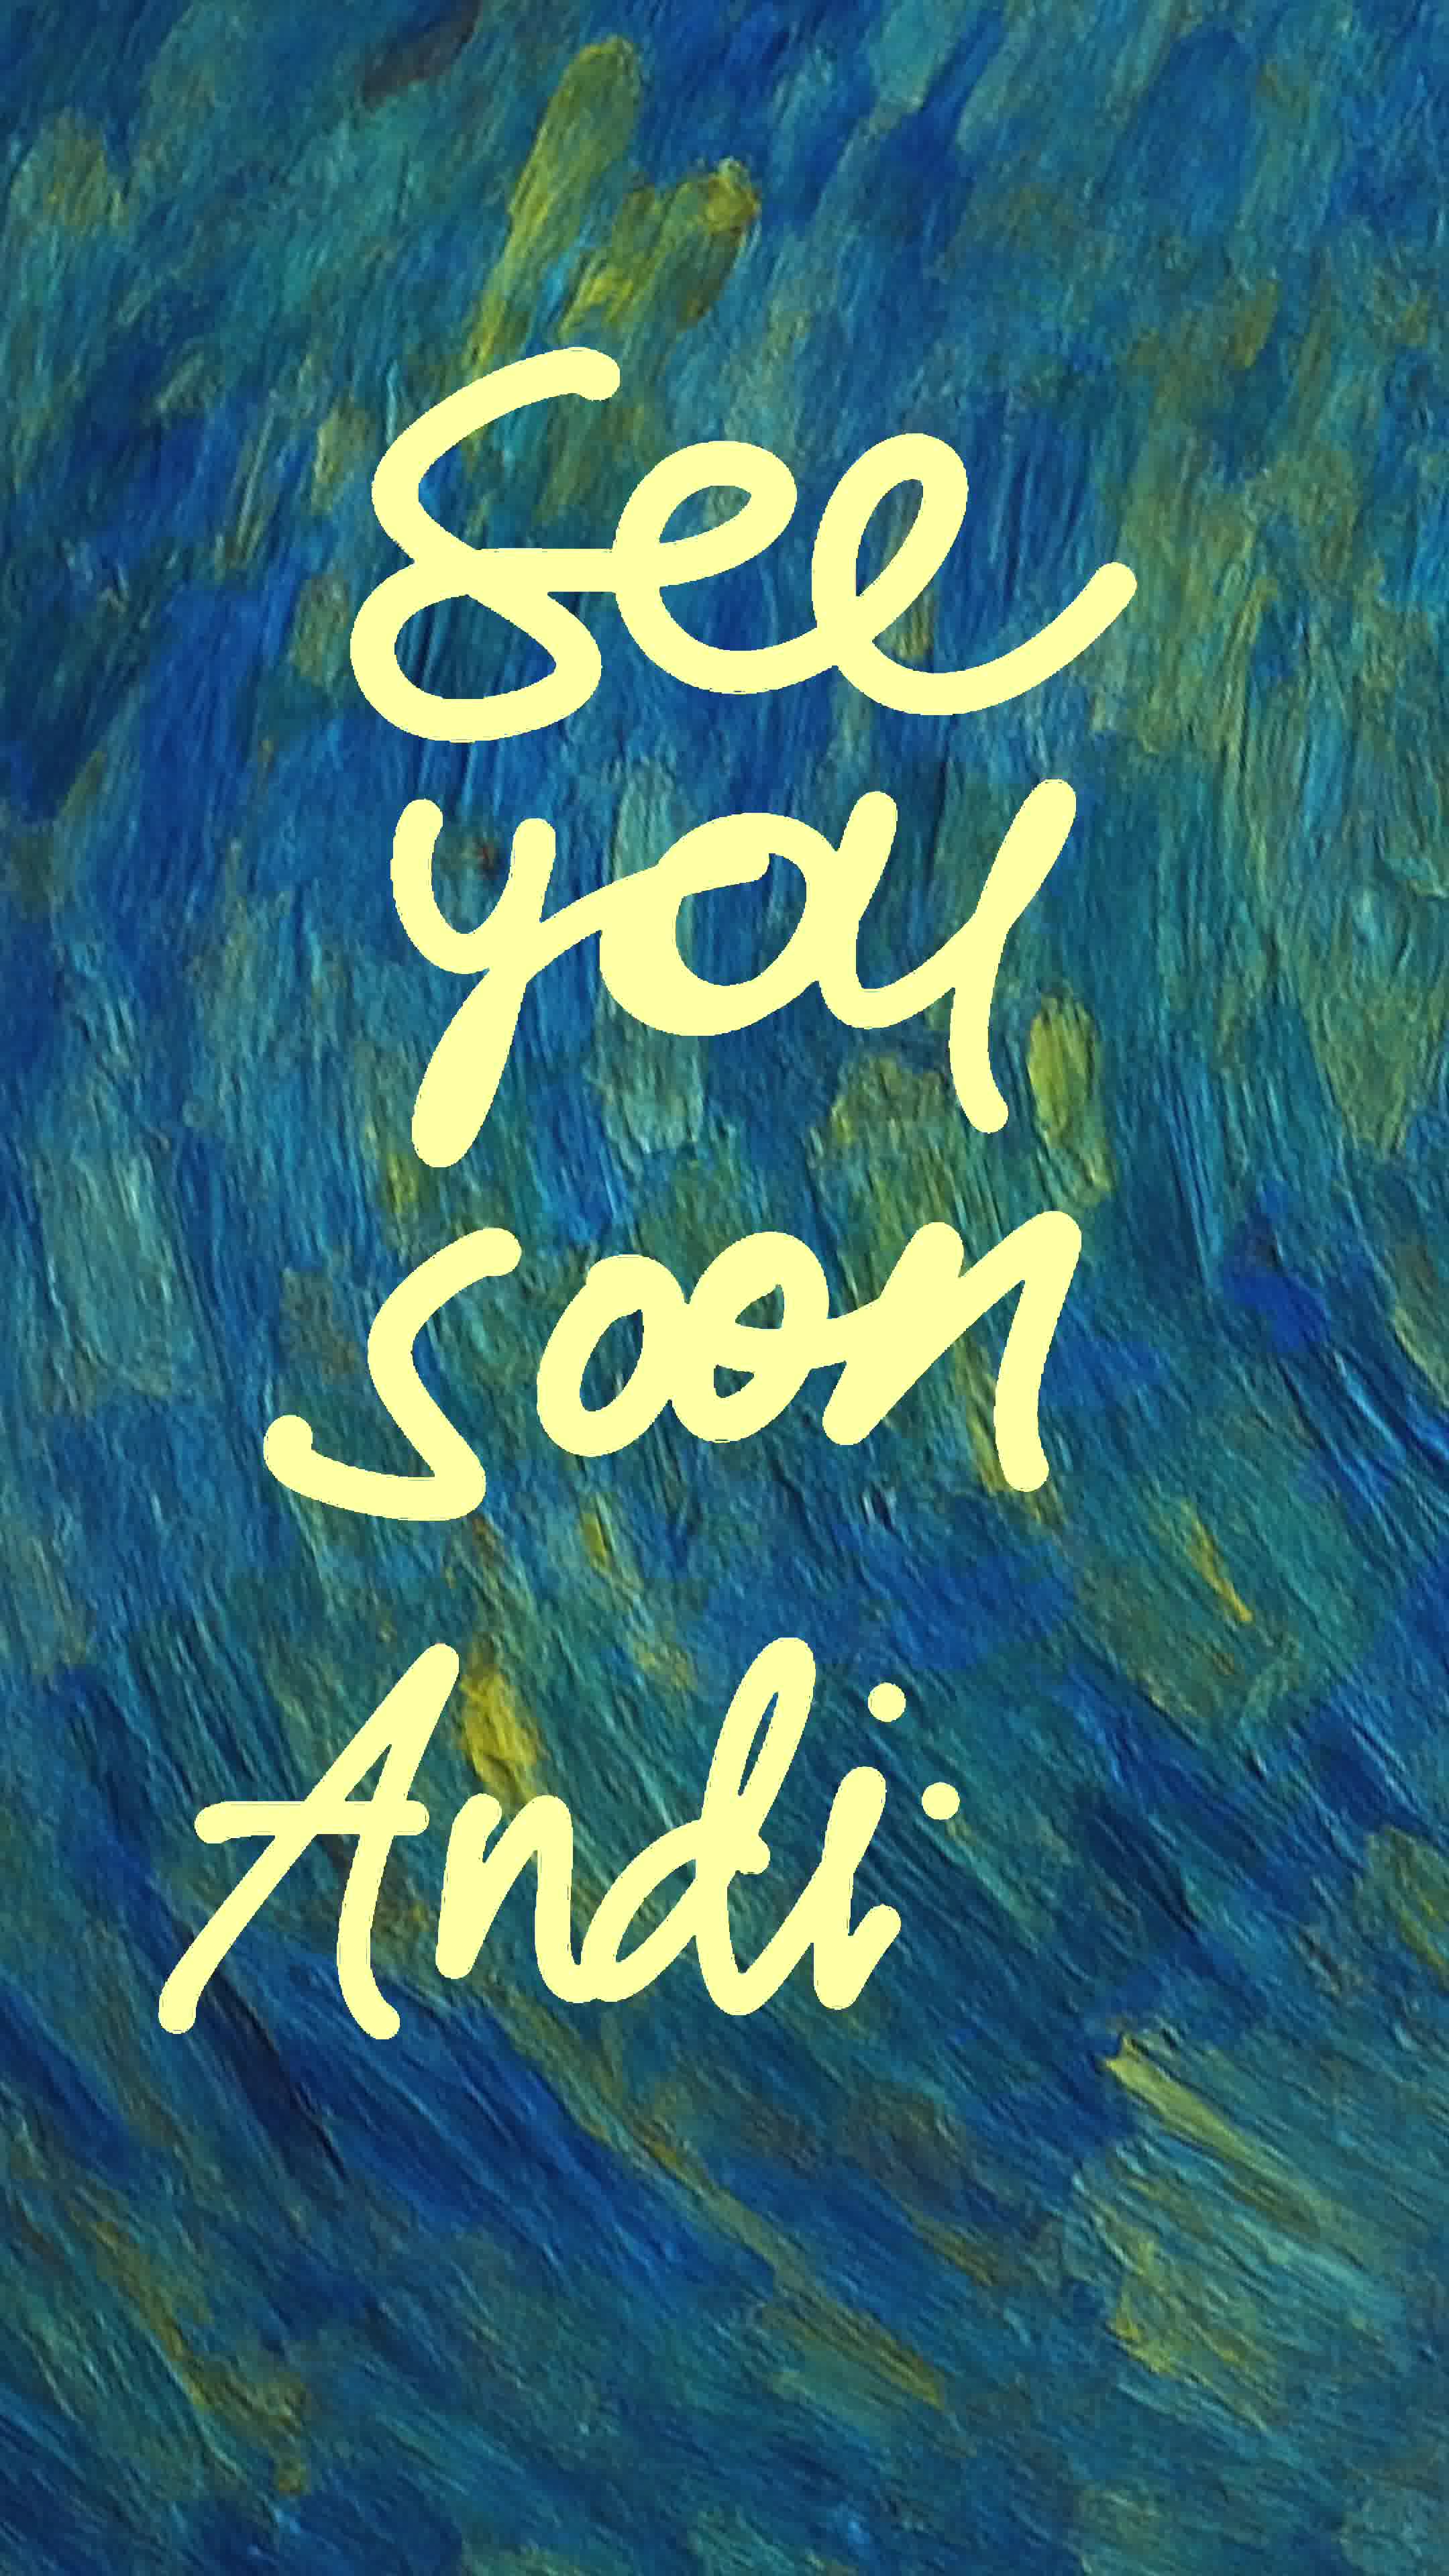 See
you
soon
Andi